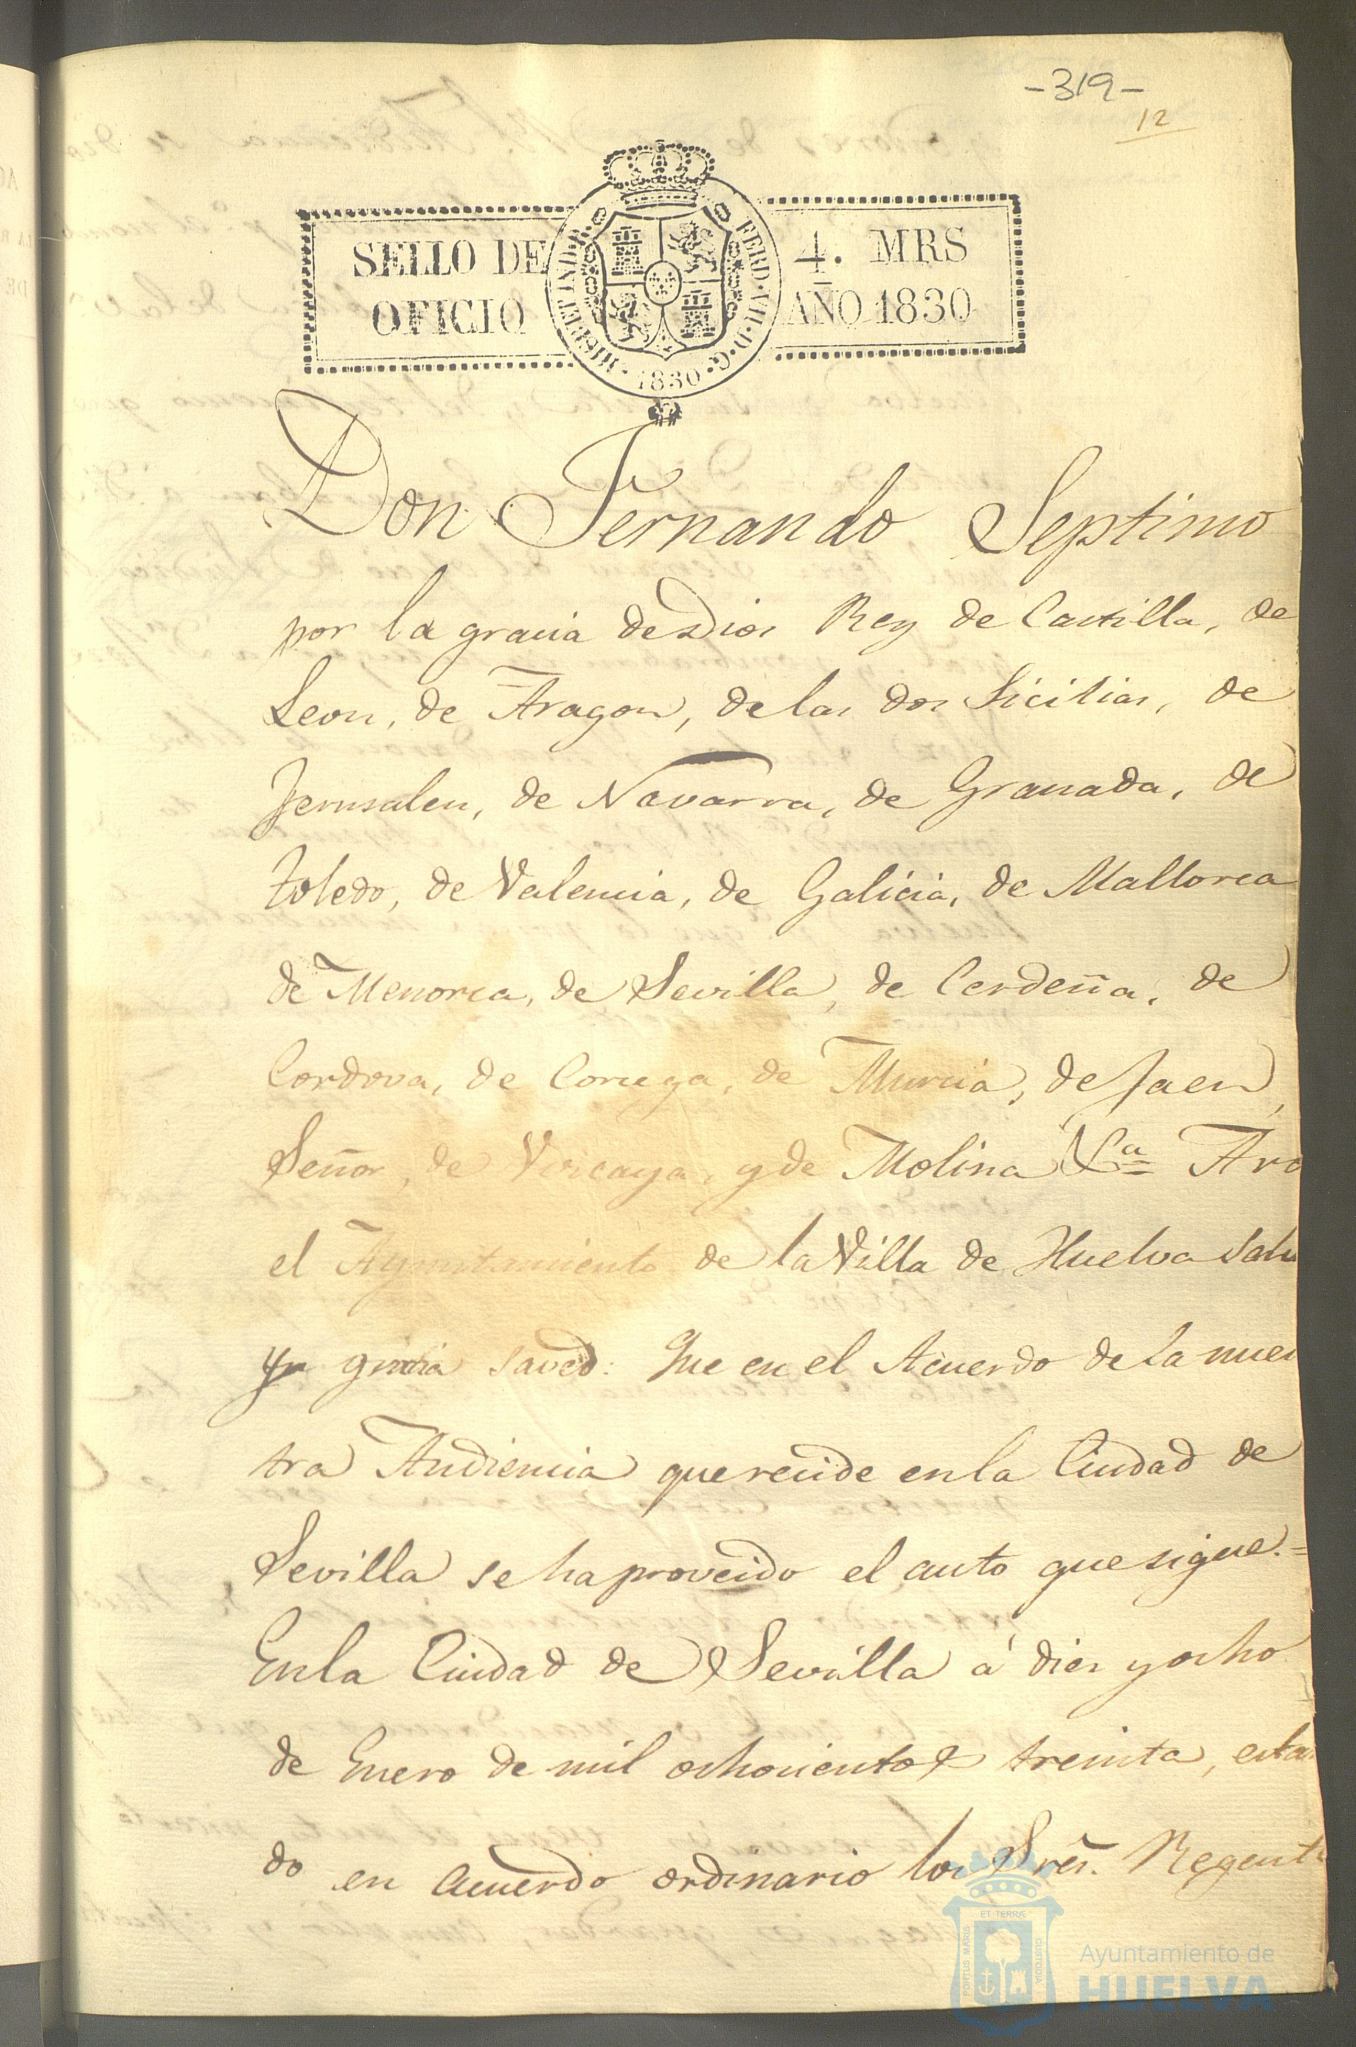 -319-
12
SELLO DE 4. MRS
OFICIO AÑO 1830
HISP. ET IND. R. FERD. VII. D. G. 1830
Don Fernando Septimo
por la gracia de Dios Rey de Castilla, de
Leon, de Aragon, de las dos Sicilias, de
Jerusalen, de Navarra, de Granada, de
Toledo, de Valencia, de Galicia, de Mallorca
de Menorca, de Sevilla, de Cerdeña, de
Cordova, de Corcega, de Murcia, de Jaen,
Señor, de Vizcaya, y de Molina &a= A vo
el Ayuntamiento de la Villa de Huelva salu
y gracia saved: Que en el Acuerdo de la nues
tra Audiencia que recide en la Ciudad de
Sevilla se ha proveido el auto que sigue.=
En la Ciudad de Sevilla á dies y ocho
de Enero de mil ochocientos treinta, estan
do en acuerdo ordinario los Sres. Regente
PORTUS MARIS ET TERRÆ CUSTODIA
Ayuntamiento de
HUELVA